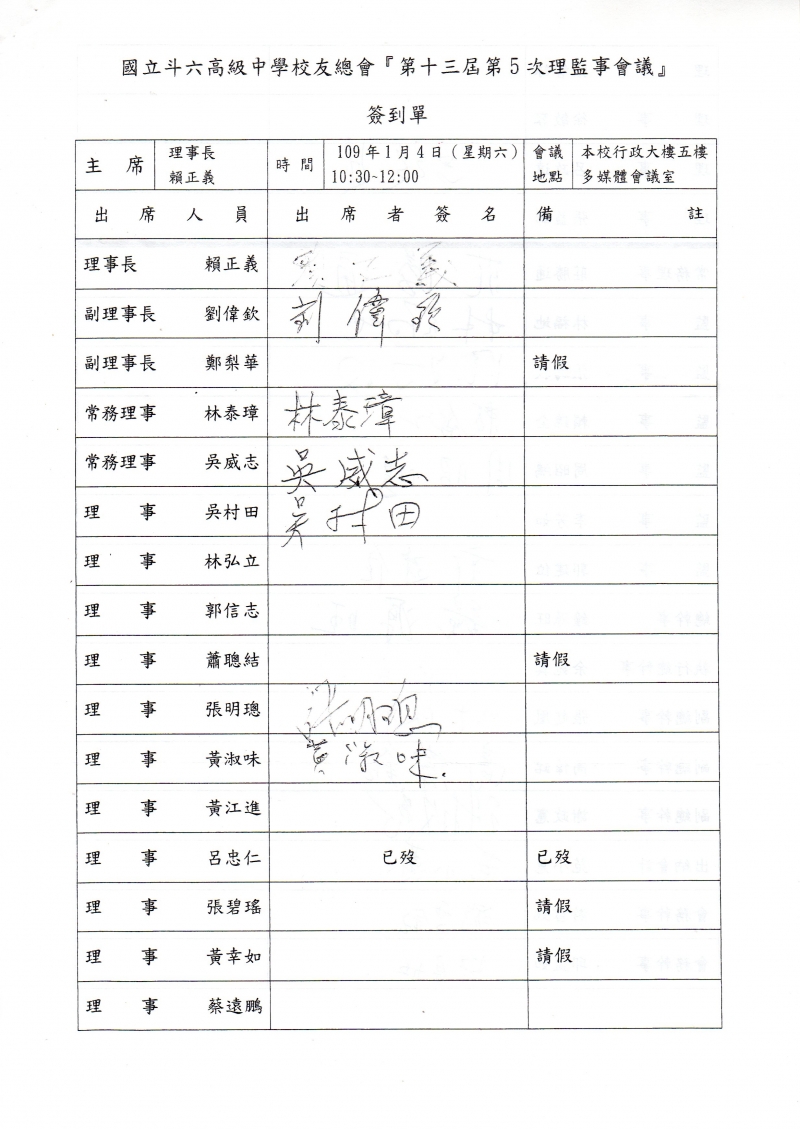 國立斗六高級中學校友總會『第十三屆第5次理監事會議』
簽到單
主席 理事長 賴正義 時間 109年1月4日（星期六）10:30~12:00 會議地點 本校行政大樓五樓多媒體會議室
出席人員 出席者簽名 備註
理事長 賴正義
副理事長 劉偉欽 劉偉欽
副理事長 鄭梨華 請假
常務理事 林泰璋 林泰璋
常務理事 吳威志 吳威志
理事 吳村田 吳村田
理事 林弘立
理事 郭信志
理事 蕭聰結 請假
理事 張明璁 張明璁
理事 黃淑味 黃淑味
理事 黃江進
理事 呂忠仁 已歿 已歿
理事 張碧瑤 請假
理事 黃幸如 請假
理事 蔡遠鵬